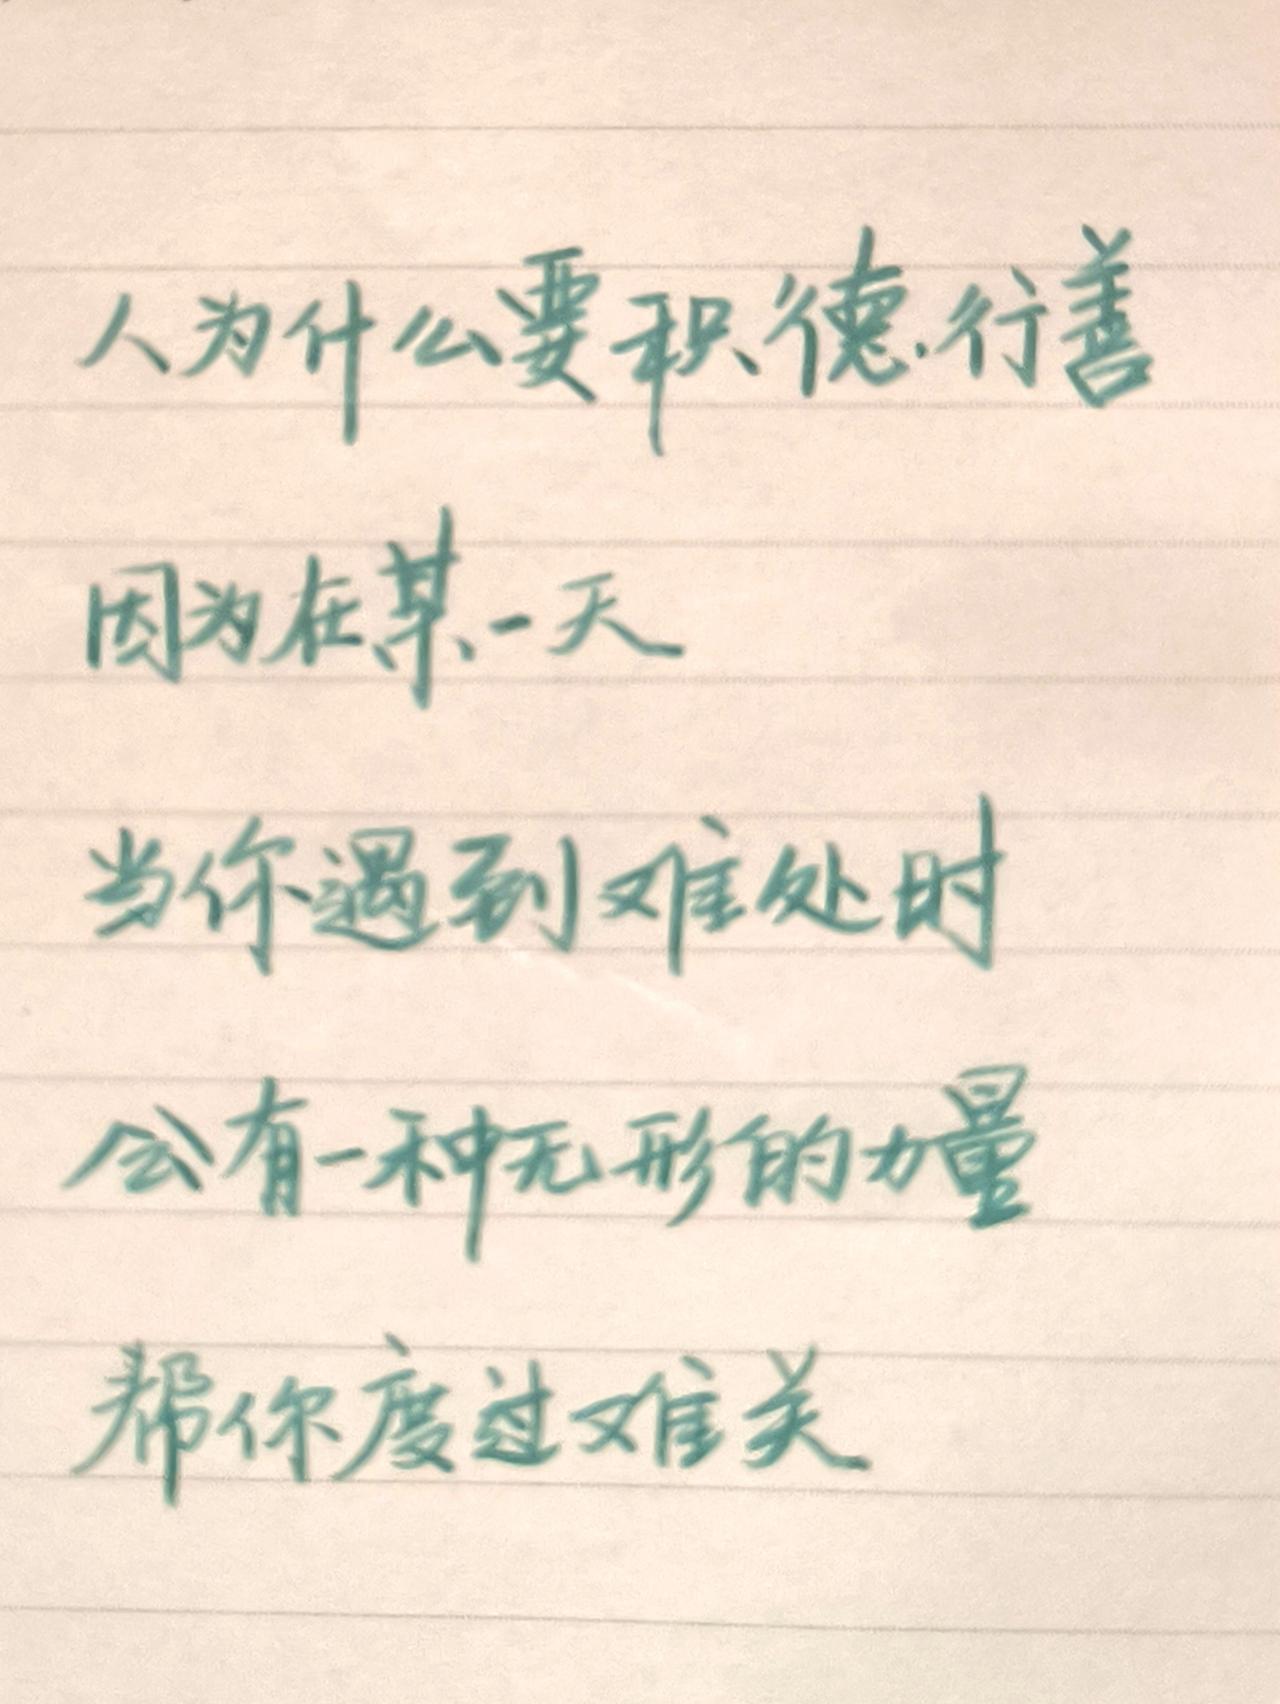 人为什么要积德行善
因为在某一天
当你遇到难处时
会有一种无形的力量
帮你度过难关